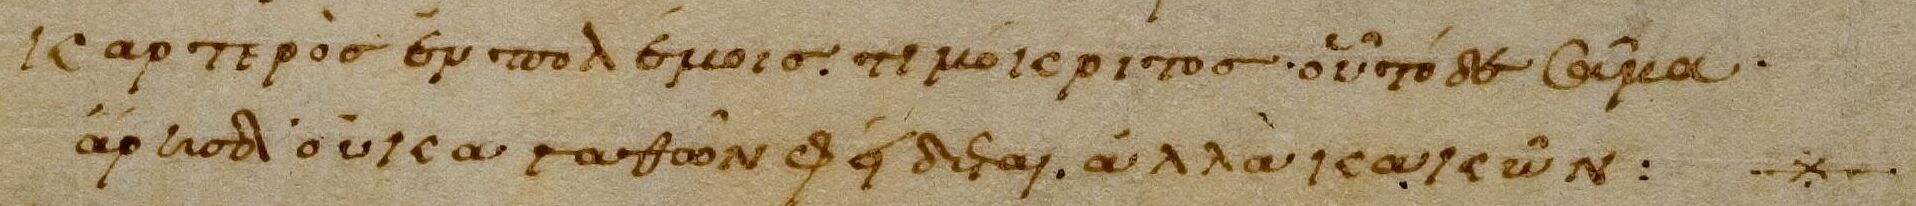 καρτερὸσ ἐν πολέμοισ. τιμόκριτοσ. οὗ τόδε σῆμα.
ἄρησ δ' οὐκ ἀγαθῶν φείδεται. ἀλλὰ κακῶν: